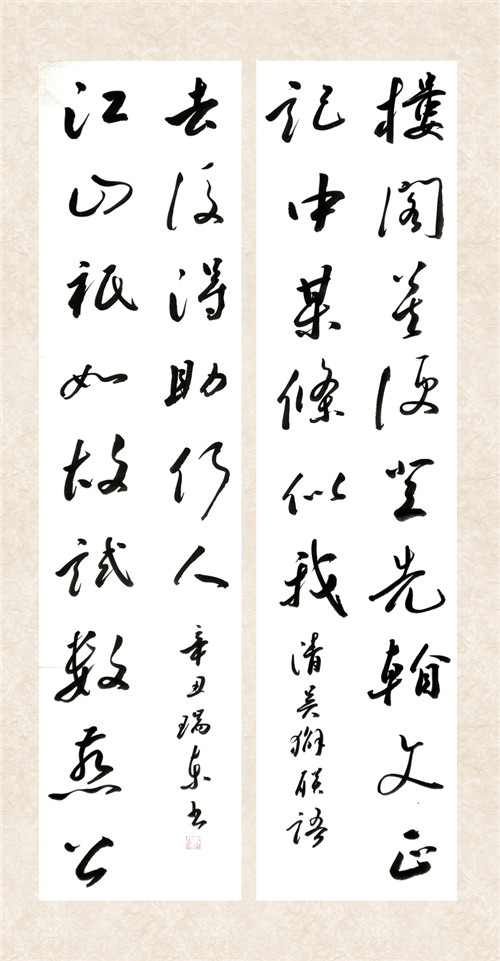 樓閣莫便登先翰文正
記中某條似我
清吳獬聯語
江山祗如故試數燕公
去後得助何人
辛丑瑞東書